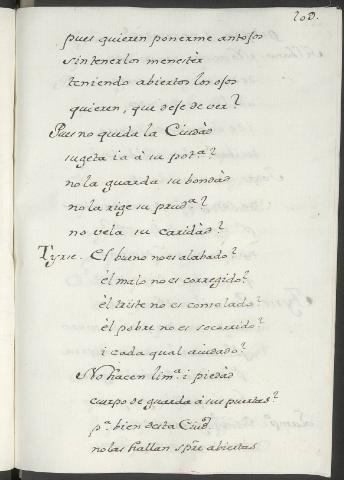 100.
pues quieren ponerme antojos
sin tenerlos menestèr
teniendo abiertos los ojos
quieren, que deje de ver?
Pues no queda la Ciudàd
sugeta ia à su pot.ª?
no la guarda su bondàd
no la rige su prud.ª?
no vela su caridàd?
Tyrse. El bueno no es alabado?
èl malo no es corregido?
èl triste no es consolado?
èl pobre no es socorrido?
i cada qual aiudado?
No hacen lim.ª i piedàd
cuerpo de guarda à sus puertas?
p.ª bien desta Ciud.
no las hallan spre abiertas